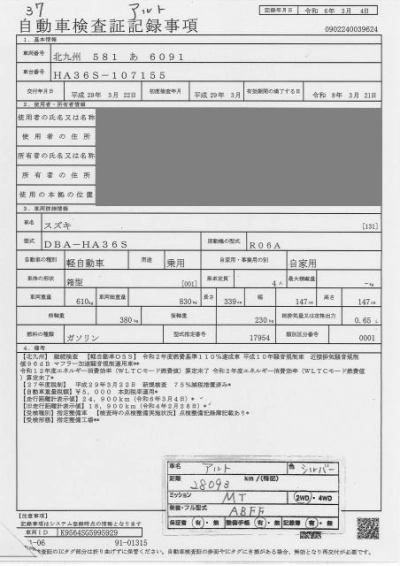 37 アルト
自動車検査証記録事項
記録年月日 令和 6年 3月 4日
0902240039624
1. 基本情報
車両番号 北九州 581 あ 6091
車台番号 HA36S-107155
交付年月日 平成 29年 3月 22日 初度検査年月 平成 29年 3月 有効期間の満了する日 令和 8年 3月 21日
2. 使用者・所有者情報
使用者の氏名又は名称
使用者の住所
所有者の氏名又は名称
所有者の住所
使用の本拠の位置
3. 車両詳細情報
車名 スズキ [131]
型式 DBA-HA36S 原動機の型式 R06A
自動車の種別 軽自動車 用途 乗用 自家用・事業用の別 自家用
車体の形状 箱型 [001] 乗車定員 4人 最大積載量 -kg
車両重量 610kg 車両総重量 830kg 長さ 339cm 幅 147cm 高さ 147cm
前軸重 380kg 後軸重 230kg 総排気量又は定格出力 0.65 L
燃料の種類 ガソリン 型式指定番号 17954 類別区分番号 0001
4. 備考
【北九州】 継続検査 【軽自動車OSS】 令和2年度燃費基準110%達成車 平成10年騒音規制車 近接排気騒音規制
値964B マフラー加速騒音規制適用車**
令和12年度エネルギー消費効率（WLTCモード燃費値）算定未了 令和2年度エネルギー消費効率（WLTCモード燃費値
）算定未了*
【27年度税制】 平成29年3月22日 新規検査 75%減税措置済み*
【自動車重量税額】¥5,000 本則税率適用*
【走行距離計表示値】24,900km（令和6年3月4日）*
【旧走行距離計表示値】18,900km（令和4年2月28日）*
【受検種別】指定整備車 【検査時の点検整備実施状況】点検整備記録簿記載あり*
【受検形態】指定整備工場**
車名 アルト 色 シルバー
距離 28093 km/(特記)
ミッション MT 2WD・4WD
車検・フル型式 ABFF
保証書 有・無 整備手帳 有・無 記録簿 有・無
【注意事項】
記録事項はシステム登録時点の情報となります
車両ID K9564SG5995929
-06 91-01315